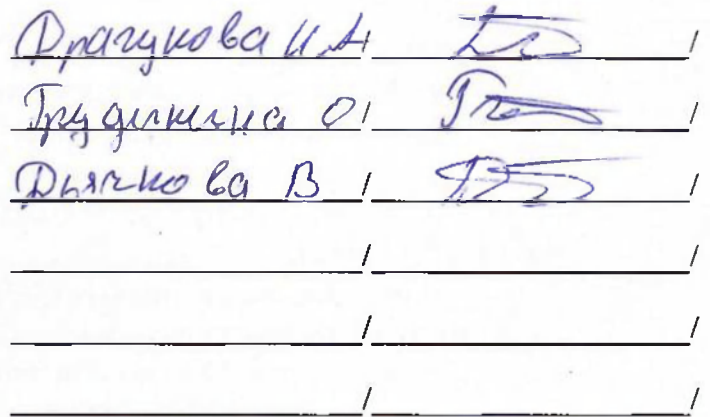 Драгунова И А / /
Грудинина О / /
Дьячкова В / /
/ /
/ /
/ /